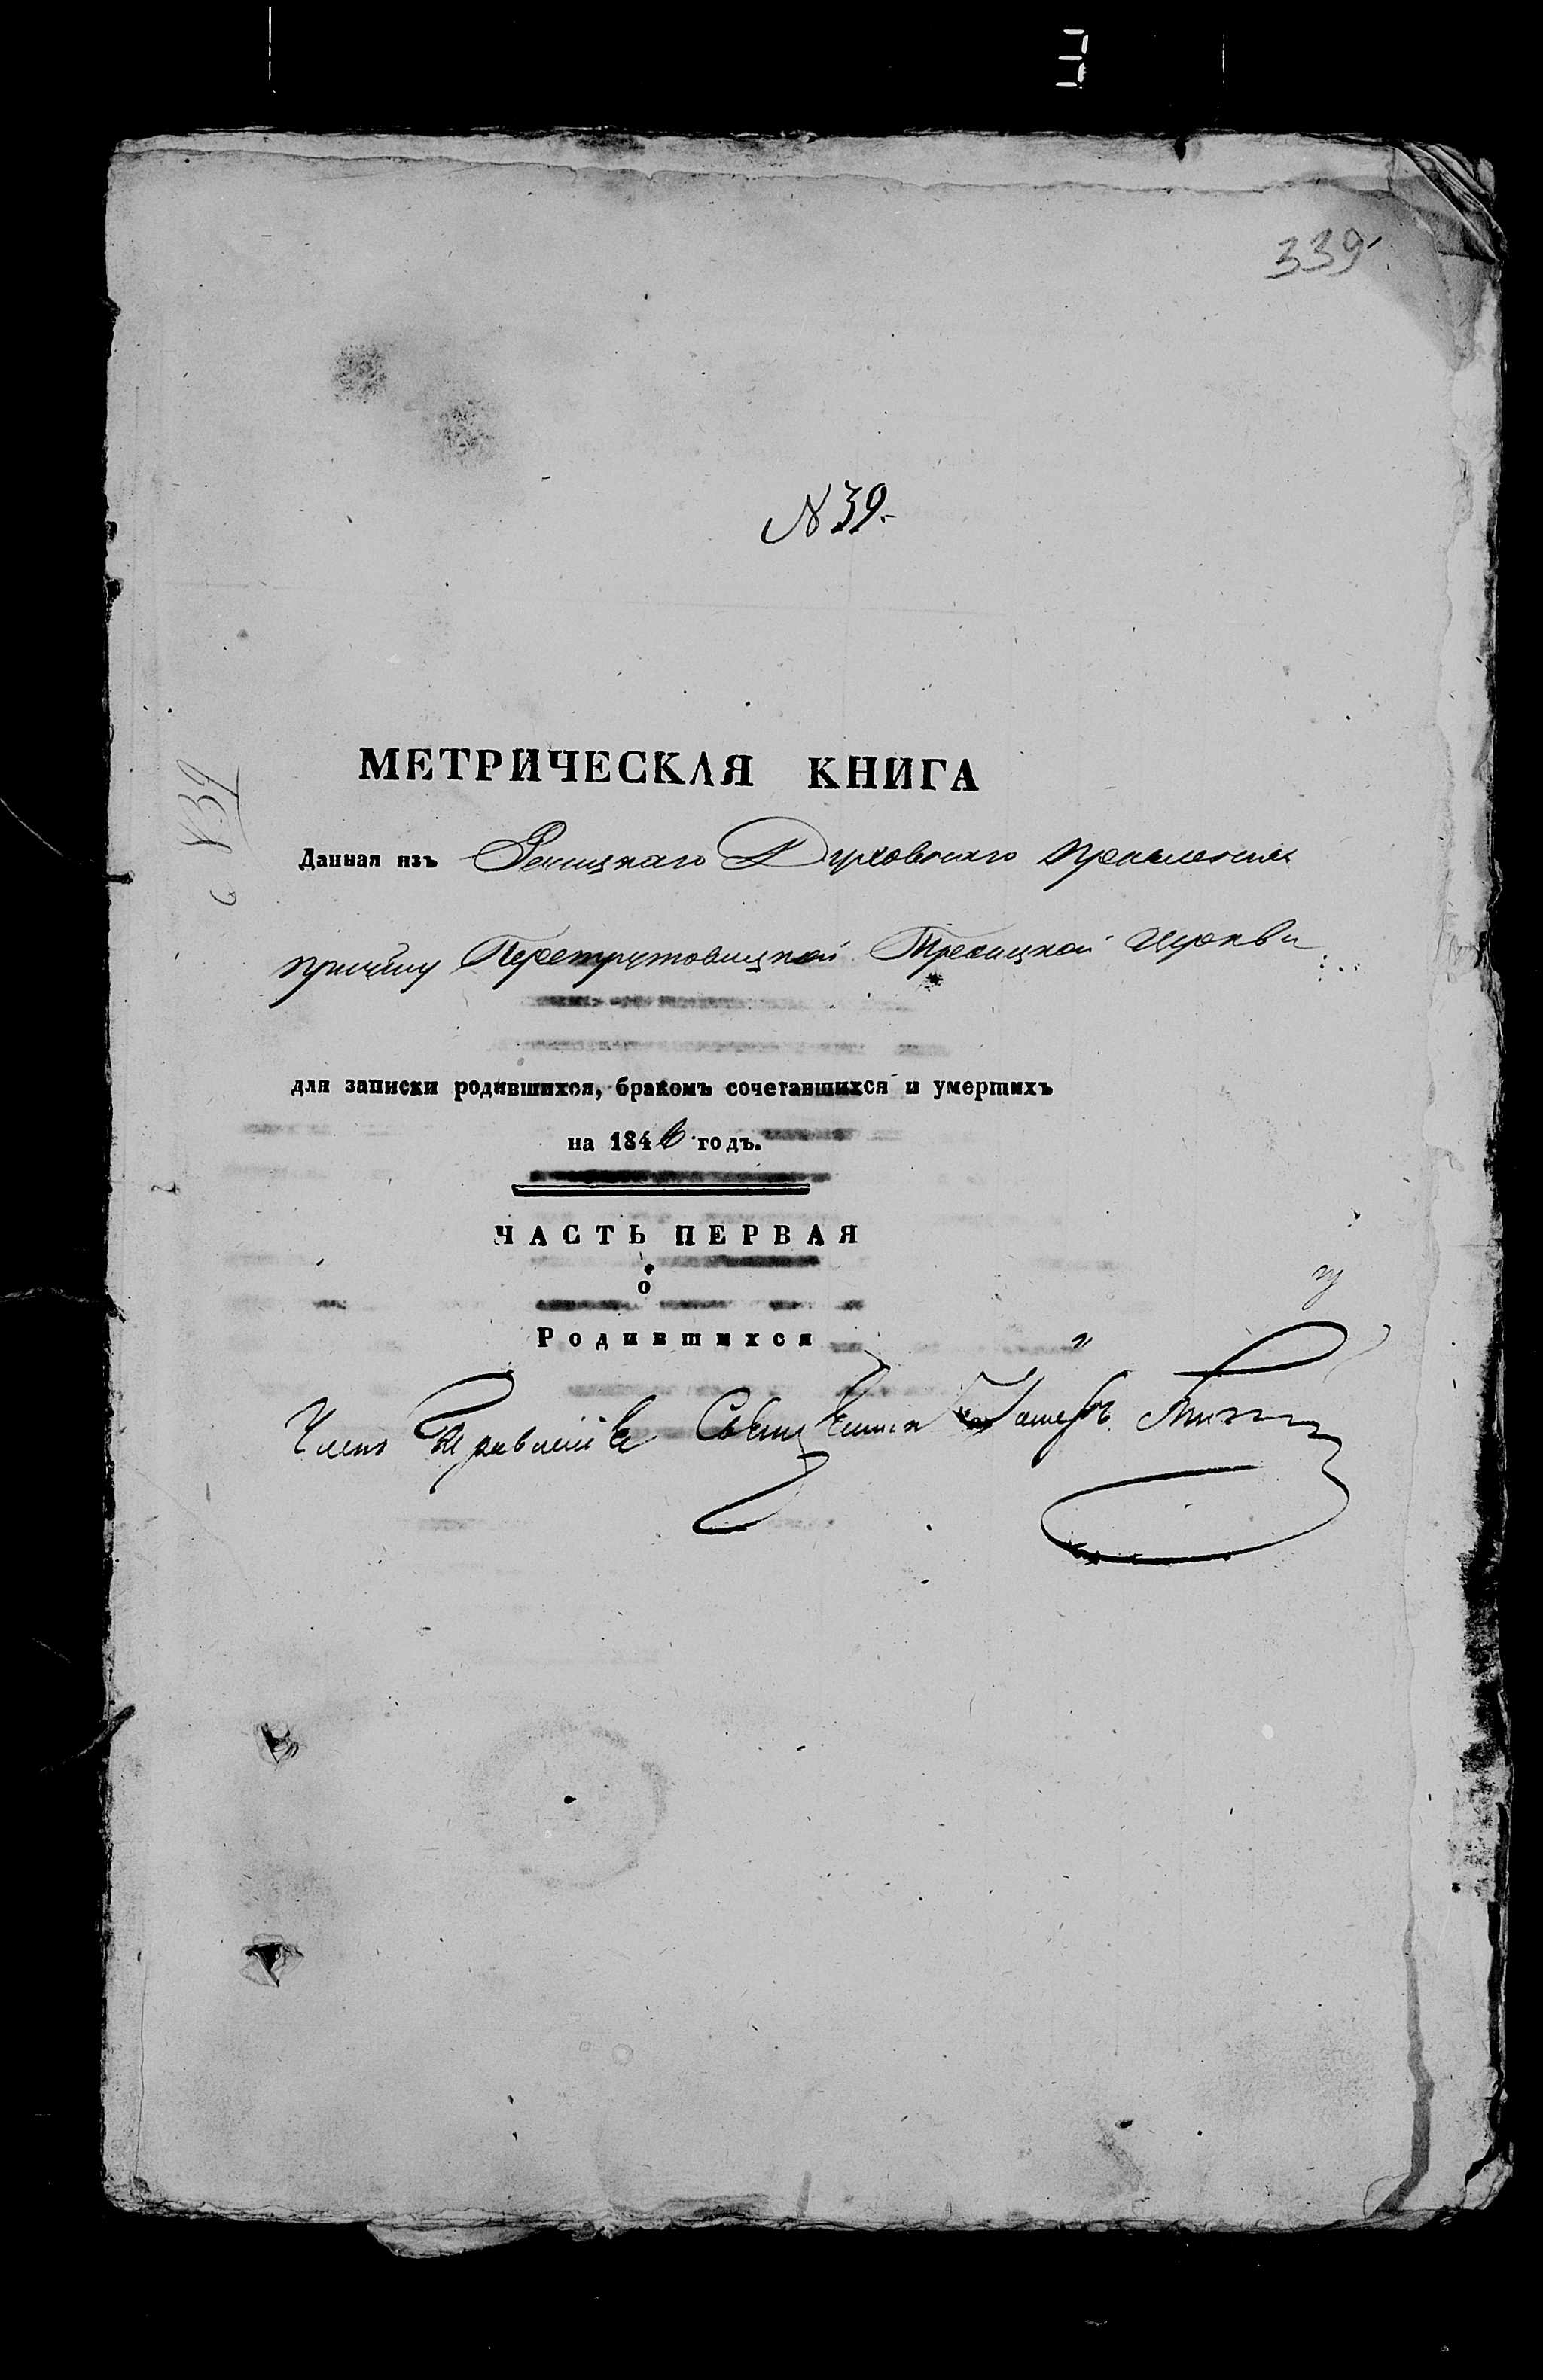 339
N 39.
N 39
МЕТРИЧЕСКАЯ КНИГА
Данная изъ Речицкаго Духовнаго Правления
причту Перетрутовицкой Троицкой Церкви
для записки родившихся, бракомъ сочетавшихся и умершихъ
на 1846 годъ.
ЧАСТЬ ПЕРВАЯ
о
Родившихся
Членъ Правленія Священникъ